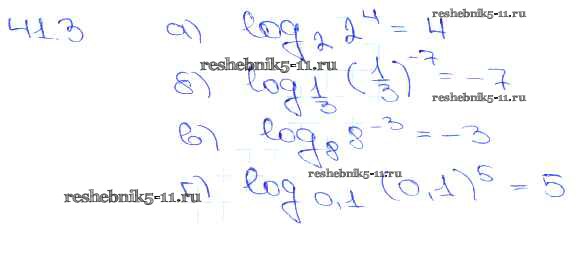 41.3 а) log₂ 2⁴ = 4 reshebnik5-11.ru
reshebnik5-11.ru
б) log_{1/3} (1/3)⁻⁷ = -7
reshebnik5-11.ru
в) log₈ 8⁻³ = -3
reshebnik5-11.ru
г) log_{0,1} (0,1)⁵ = 5
reshebnik5-11.ru